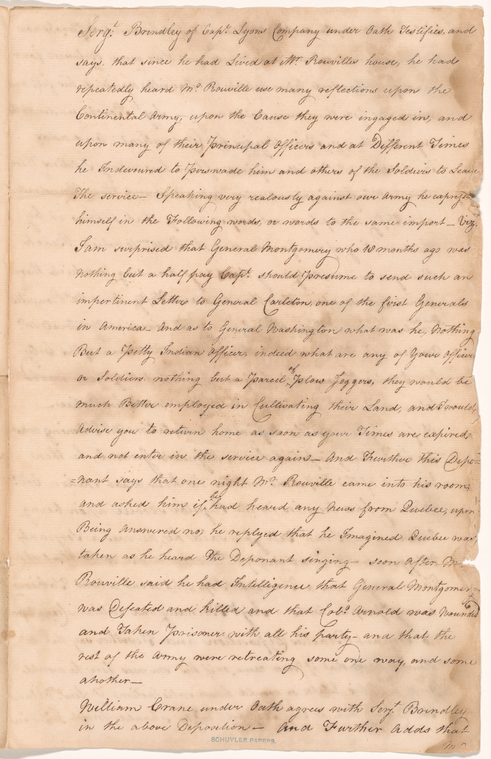 Serg.t Brindley of Cap.t Lyons Company under Oath Testifies, and
says, that since he had Lived at Mr. Rouvilles house, he had
repeatedly heard Mr. Rouville use many reflections upon the
Continental Army, upon the Cause they were ingaged in, and
upon many of their Principal Officers and at Different Times
he Indevoured to Perswade him and others of the Soldiers to Leave
The service — Speaking very zealously against our Army he
himself in the Following words, or words to the same import — Viz
I am surprised that General Montgomery who 18 months ago was
nothing but a half pay Cap.t should Presume to send such an
impertinent Letter to General Carleton, one of the first Generals
in America. And as to General Washington what was he. Nothing
But a Petty Indian Officer, indeed what are any of your Officers
or Soldiers nothing but a Parcel of Plow Joggers, they would be
much Better employed in Cultivating their Land, and I would
Advise you to return home as soon as your Times are expired
and not enter in the service again — And Further this Depo=
=nant says that one night Mr. Rouville came into his room
and asked him if he had heard any News from Quebec, upon
Being answered no: he replyed that he Imagined Quebec was
taken as he heard the Deponant singing — soon After Mr.
Rouville said he had Intelligence that General Montgomery
was Defeated and killed and that Colo. Arnold was Wounded
and Taken Prisoner with all his party — and that the
rest of the Army were retreating some one way, and some
another —
William Crane under Oath agrees with Serj.t Brindley
in the above Deposition — And Further Adds that
Mr.
SCHUYLER PAPERS